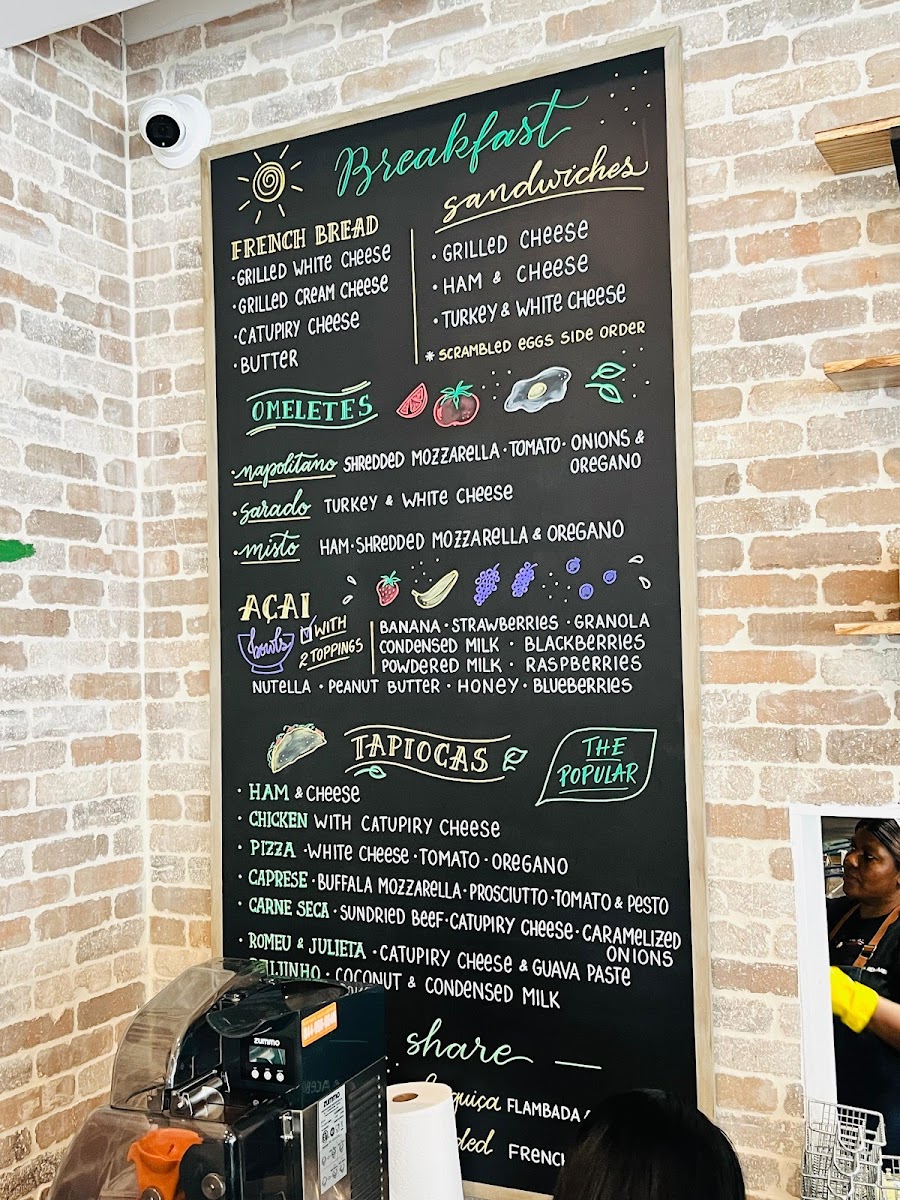 Breakfast
FRENCH BREAD
·GRILLED WHITE CHEESE
·GRILLED CREAM CHEESE
·CATUPIRY CHEESE
·BUTTER
sandwiches
· GRILLED CHEESE
· HAM & CHEESE
· TURKEY & WHITE CHEESE
* SCRAMBLED EGGS SIDE ORDER
OMELETES
·napolitano SHREDDED MOZZARELLA · TOMATO · ONIONS &
OREGANO
·sarado TURKEY & WHITE CHEESE
·misto HAM·SHREDDED MOZZARELLA & OREGANO
AÇAI
bowls
WITH
2 TOPPINGS
BANANA · STRAWBERRIES · GRANOLA
CONDENSED MILK · BLACKBERRIES
POWDERED MILK · RASPBERRIES
NUTELLA · PEANUT BUTTER · HONEY · BLUEBERRIES
TAPIOCAS
THE
POPULAR
· HAM & CHEESE
· CHICKEN WITH CATUPIRY CHEESE
· PIZZA ·WHITE CHEESE · TOMATO · OREGANO
· CAPRESE · BUFFALA MOZZARELLA · PROSCIUTTO · TOMATO & PESTO
· CARNE SECA · SUNDRIED BEEF · CATUPIRY CHEESE · CARAMELIZED
ONIONS
· ROMEU & JULIETA · CATUPIRY CHEESE & GUAVA PASTE
· COCONUT & CONDENSED MILK
share
FLAMBADA
zummo
zummo